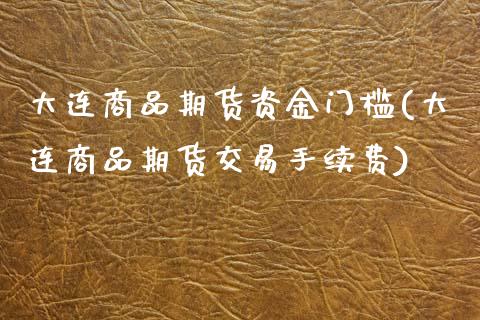 大连商品期货资金门槛(大
连商品期货交易手续费)